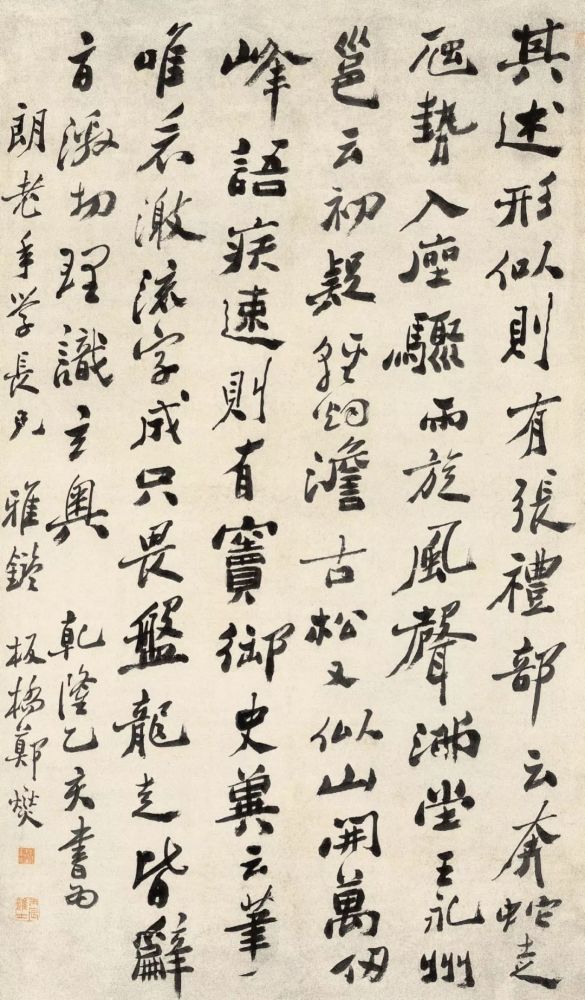 其述形似則有張禮部云奔蛇走
虺勢入座驟雨旋風聲滿堂王永州
邕云初疑輕烟澹古松又似山開萬仞
峰語疾速則有竇御史冀云筆下
唯看激流字成只畏盤龍走皆辭
旨激切理識玄奧 乾隆乙亥書為
朗老年学長兄 雅鑒 板橋鄭燮